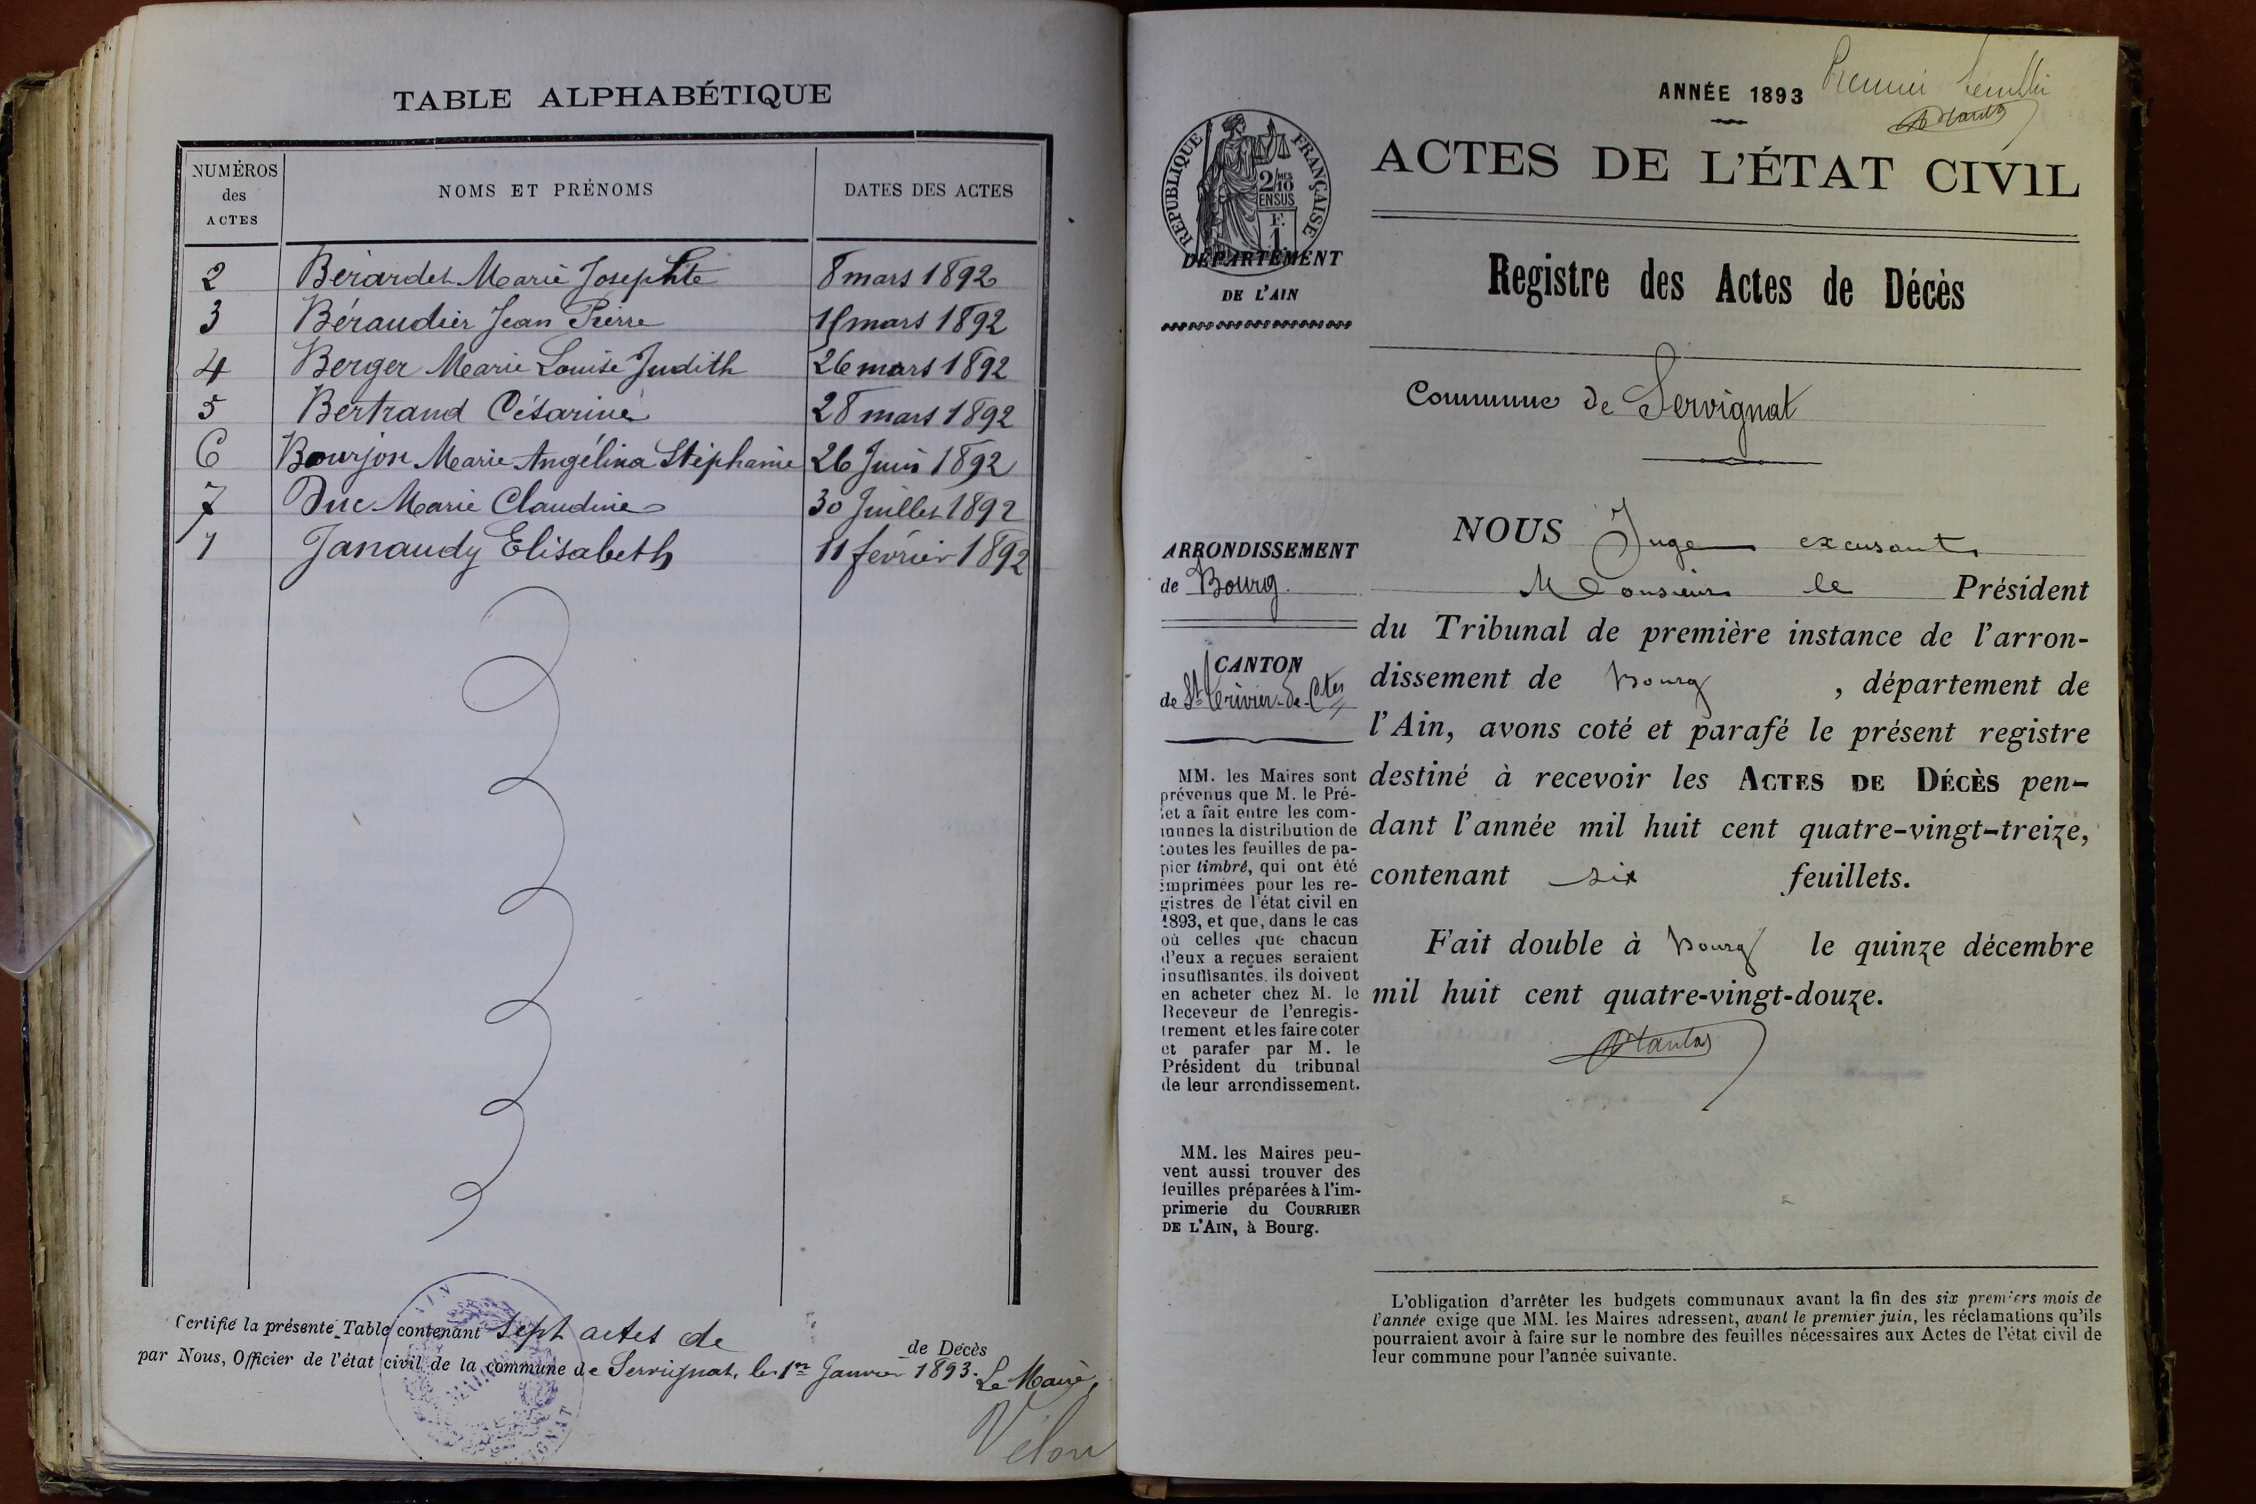 TABLE ALPHABÉTIQUE
NUMÉROS des ACTES
NOMS ET PRÉNOMS
DATES DES ACTES
2 Bérardet Marie Josephte 8 mars 1892
3 Béraudier Jean Pierre mars 1892
4 Berger Marie Louise Judith 26 mars 1892
5 Bertrand Césarine 28 mars 1892
6 Bourjon Marie Angélina Stéphanie 26 Juin 1892
7 Duc Marie Claudine 30 Juillet 1892
1 Janaudy Elisabeth 11 février 1892
Certifié la présente Table contenant Sept actes de
de Décès
par Nous, Officier de l'état civil de la commune de Servignat, le 1er Janvier 1893. Le Maire,
Vélon
ANNÉE 1893 Premier
ACTES DE L'ÉTAT CIVIL
RÉPUBLIQUE FRANÇAISE
2/10 MES
EN SUS
F.
1
DÉPARTEMENT
DE L'AIN
Registre des Actes de Décès
Commune de Servignat
ARRONDISSEMENT
de Bourg
CANTON
de St Trivier-de-Ctes
MM. les Maires sont
prévenus que M. le Pré-
fet a fait entre les com-
munes la distribution de
toutes les feuilles de pa-
pier timbré, qui ont été
imprimées pour les re-
gistres de l'état civil en
1893, et que, dans le cas
où celles que chacun
d'eux a reçues seraient
insuffisantes, ils doivent
en acheter chez M. le
Receveur de l'enregis-
trement et les faire coter
et parafer par M. le
Président du tribunal
de leur arrondissement.
MM. les Maires peu-
vent aussi trouver des
feuilles préparées à l'im-
primerie du COURRIER
DE L'AIN, à Bourg.
NOUS Juge excusant
Monsieur le Président
du Tribunal de première instance de l'arron-
dissement de Bourg, département de
l'Ain, avons coté et parafé le présent registre
destiné à recevoir les ACTES DE DÉCÈS pen-
dant l'année mil huit cent quatre-vingt-treize,
contenant six feuillets.
Fait double à Bourg le quinze décembre
mil huit cent quatre-vingt-douze.
L'obligation d'arrêter les budgets communaux avant la fin des six premiers mois de
l'année exige que MM. les Maires adressent, avant le premier juin, les réclamations qu'ils
pourraient avoir à faire sur le nombre des feuilles nécessaires aux Actes de l'état civil de
leur commune pour l'année suivante.